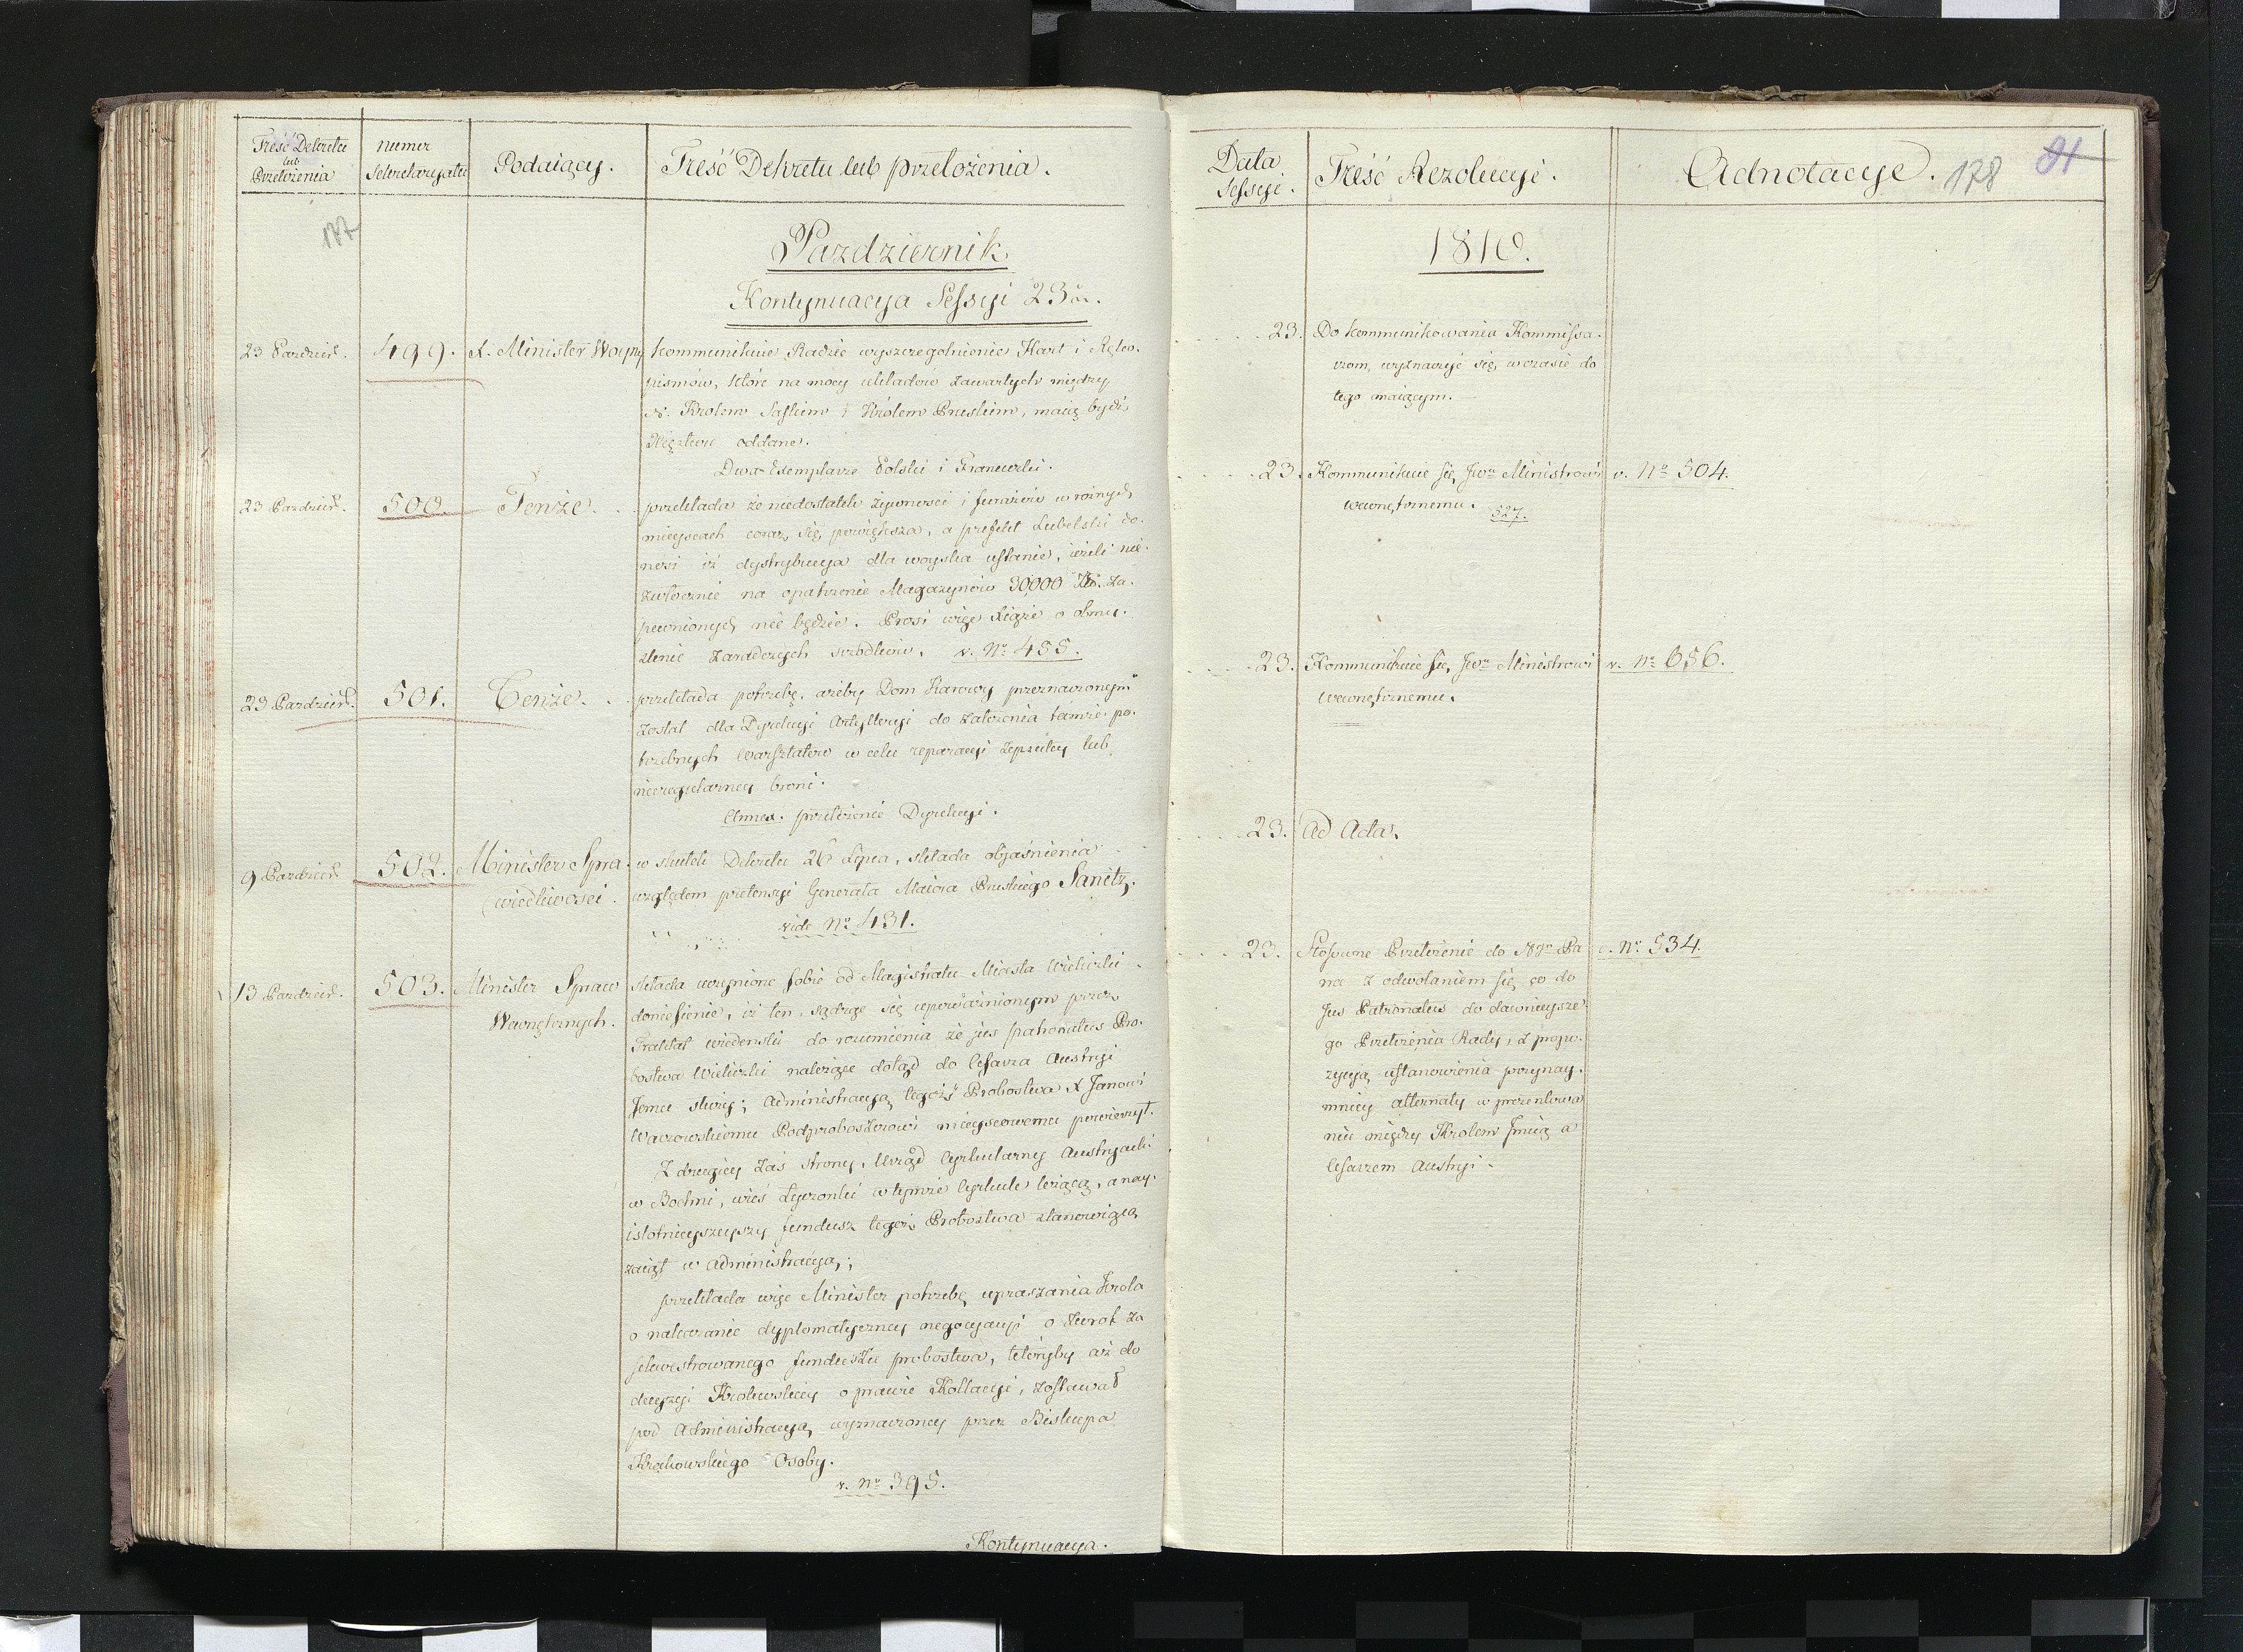 Treść Dekretu
lub
Przełożenia
numer
Sekretaryatu
Podaiący.
Treść Dekretu lub przełożenia.
177
Pazdziernik
Kontynuacya Sessyi 23.
23 Pazdzier.
499.
X. Minister Woyny
kommunikuie Radzie wyszczegolnienie Kart i Ręko-
pismów, które na mocy układów zawartych między
N. Krolem Saskim i Królem Pruskim, maią bydź
Xięztwu oddane.
Dwa Exemplarze Polski i Francuzki.
23 Pazdzier.
500.
Tenże.
przekłada że niedostatek żywności i furażu w rożnych
mieyscach coraz się powiększa, a prefekt Lubelski do-
nosi iż dystrybucya dla woyska ustanie, ieżeli nie-
zwłocznie na opatrzenie Magazynów 30000 Zł. za-
pewnionych nie będzie. Prosi więc Xiąże o obmy-
ślenie zaradczych srzodków. v. No. 455.
23 Pazdzier.
501.
Tenże.
przekłada potrzebę, ażeby Dom Karowy przeznaczonym
został dla Dyrekcyi Artylleryi do założenia tamże po-
trzebnych Warsztatów w celu reparacyi zepsutey lub
nieregularney broni.
Annex. przełożenie Dyrekcyi.
9 Pazdzier.
502.
Minister Spra-
wiedliwości.
w skutek Dekretu 26 Lipca, składa obiaśnienia
względem pretensyi Generała Maiora Pruskiego Sanitz.
vide No. 431.
13 Pazdzier.
503.
Minister Spraw
Wewnętrznych.
składa uczynione sobie od Magistratu Miasta Wieliczki
doniesienie, iż ten, sądząc się upoważnionym przez
Traktat wiedenski do rozumienia że jus patronatus Pro-
bostwa Wieliczki należące dotąd do Cesarza Austryi
Jemu służy; Administracyą tegoż Probostwa X Janowi
Waczowskiemu Podproboszczowi mieyscowemu powierzył.
Z drugiey zaś strony, Urząd Cyrkularny Austryacki
w Bochni, wieś Łyczonki w tymże Cyrkule leżącą, a nay-
istotnieyszyszy fundusz tegoż Probostwa stanowiącą
zaiął w administracyą;
przekłada więc Minister potrzebę upraszania Krola
o nakazanie dyplomatyczney negocyacyi o zwrot za
sekwestrowanego funduszu probostwa, któryby aż do
decyzyi Krolewskiey o prawie Kollacyi, zostawał
pod Administracyą wyznaczoney przez Biskupa
Krakowskiego Osoby.
v. No. 395.
Kontynuacya.
Data
Sessyi.
Treść Rezolucyi.
Adnotacye.
178
91
1810.
23.
Do kommunikowania Kommissa-
rzom, wyznaczyć się, w czasie do
tego maiącym.
23.
Kommunikuie się Jwu Ministrowi
wewnętrznemu.
527.
v. No. 504.
23.
Kommunikuie się Jwu Ministrowi
wewnętrznemu.
v. No. 656.
23.
Ad Acta.
23.
Stosowne Przełożenie do Ngo Pa
na z odwołaniem się, co do
Jus Patronatus do dawnieysze-
go Przełożenia Rady, z propo-
zycyą ustanowienia przynay-
mniey alternaty w prezentowa
niu między Krolem Jmią a
Cesarzem Austryi.
v. No. 534.